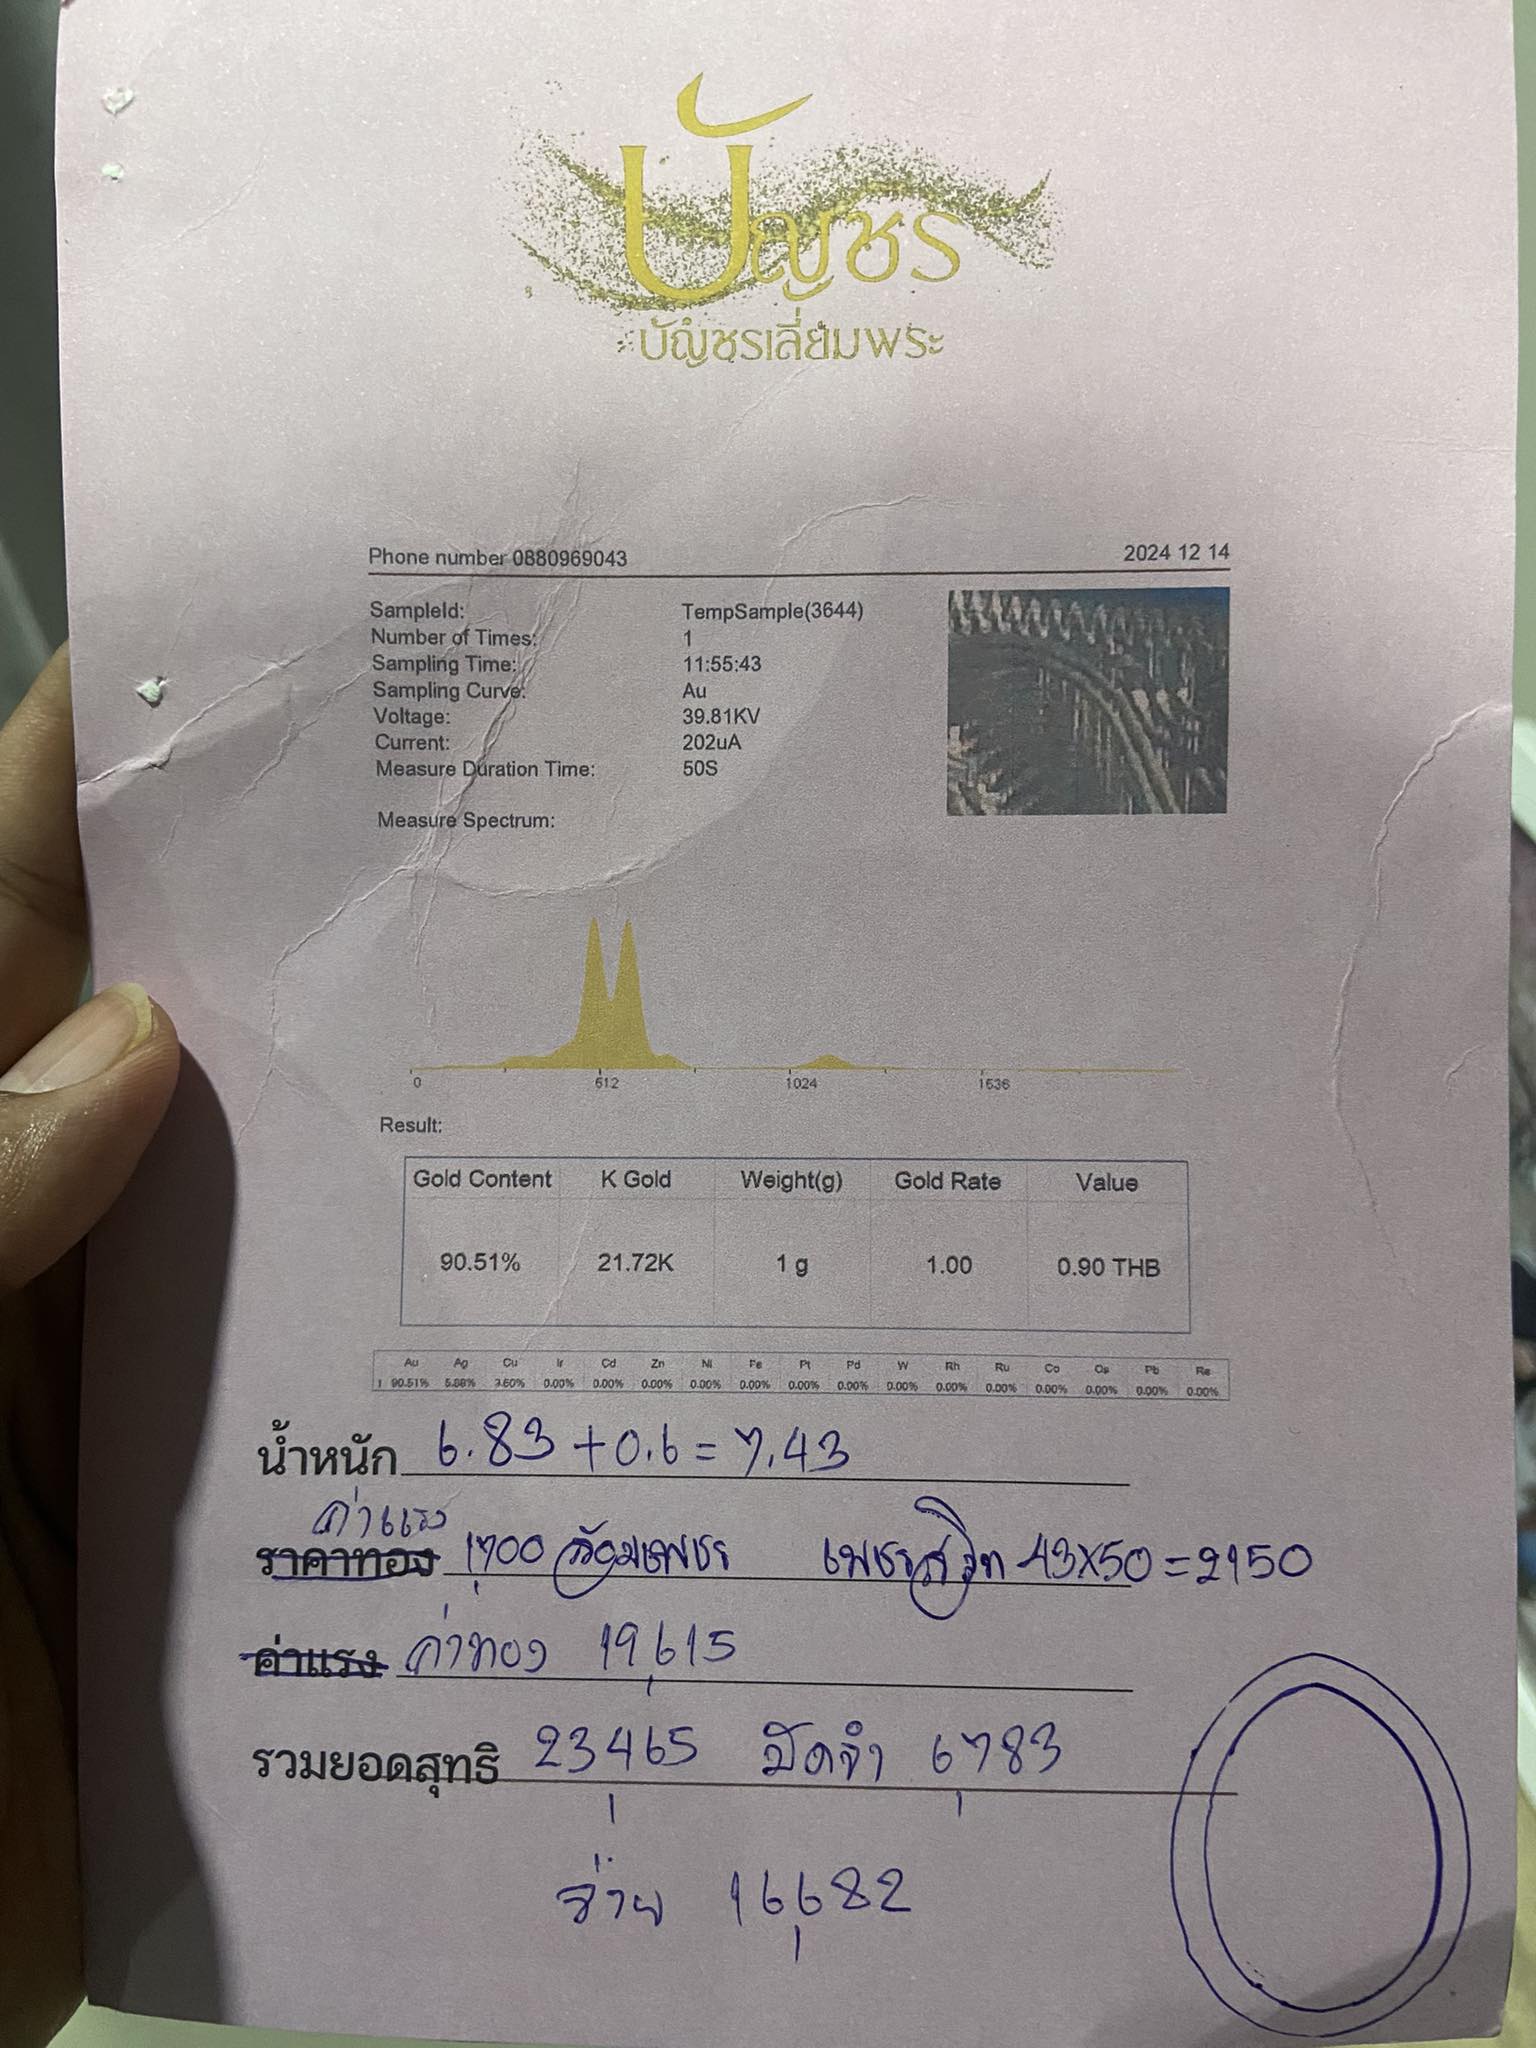 บัญชร
บัญชรเลี่ยมพระ
Phone number 0880969043 2024 12 14
SampleId: TempSample(3644)
Number of Times: 1
Sampling Time: 11:55:43
Sampling Curve: Au
Voltage: 39.81KV
Current: 202uA
Measure Duration Time: 50S
Measure Spectrum:
0 512 1024 1536
Result:
Gold Content K Gold Weight(g) Gold Rate Value
90.51% 21.72K 1 g 1.00 0.90 THB
Au Ag Cu Ir Cd Zn Ni Fe Pt Pd W Rh Ru Co Os Pb Re
1 90.51% 5.88% 3.60% 0.00% 0.00% 0.00% 0.00% 0.00% 0.00% 0.00% 0.00% 0.00% 0.00% 0.00% 0.00% 0.00% 0.00%
น้ำหนัก 6.83 + 0.6 = 7.43
ค่าแรง
ราคาทอง 1,700 ล้อมเพชร เพชรสวิท 43x50 = 2150
ค่าแรง ค่าทอง 19,615
รวมยอดสุทธิ 23,465 มัดจำ 6,783
จ่าย 16,682